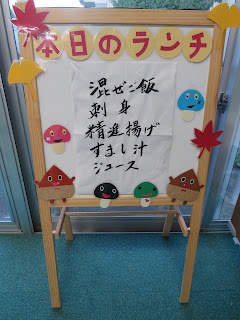 本日のランチ
混ぜご飯
刺身
精進揚げ
すまし汁
ジュース